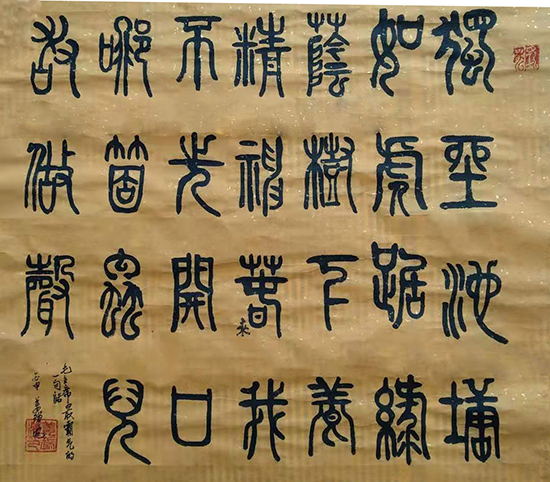 獨坐池塘
如虎踞綠
蔭樹下養
精神春來我
不先開口
哪箇蟲兒
敢做聲
毛主席最霸气的
一句話
丙申